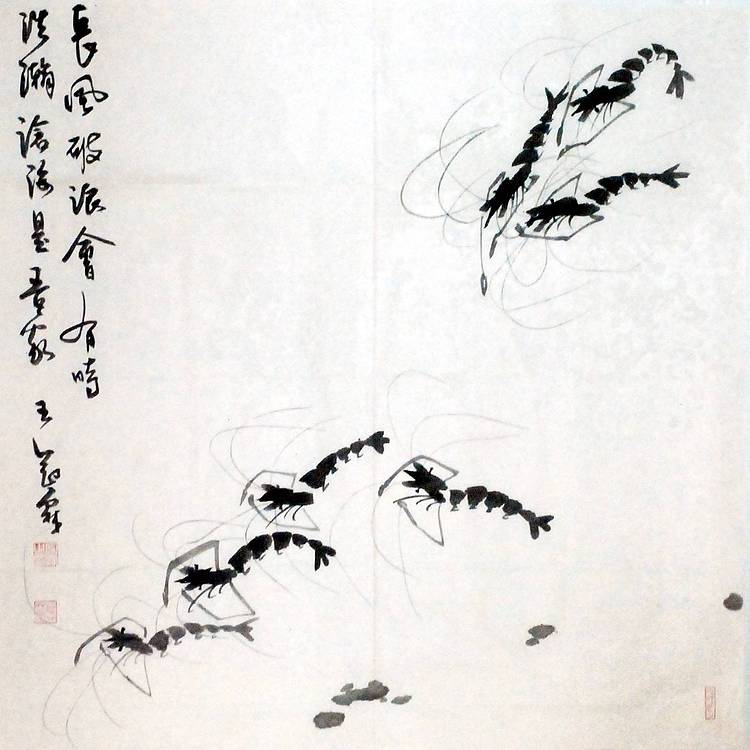 長風破浪會有時
浩瀚滄海是吾家
王